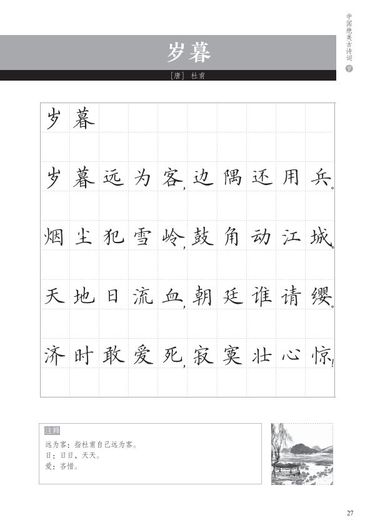 中国绝美古诗词
岁暮
［唐］ 杜甫
岁暮
岁暮远为客，边隅还用兵。
烟尘犯雪岭，鼓角动江城。
天地日流血，朝廷谁请缨。
济时敢爱死，寂寞壮心惊！
注释
远为客：指杜甫自己远为客。
日：日日，天天。
爱：吝惜。
27